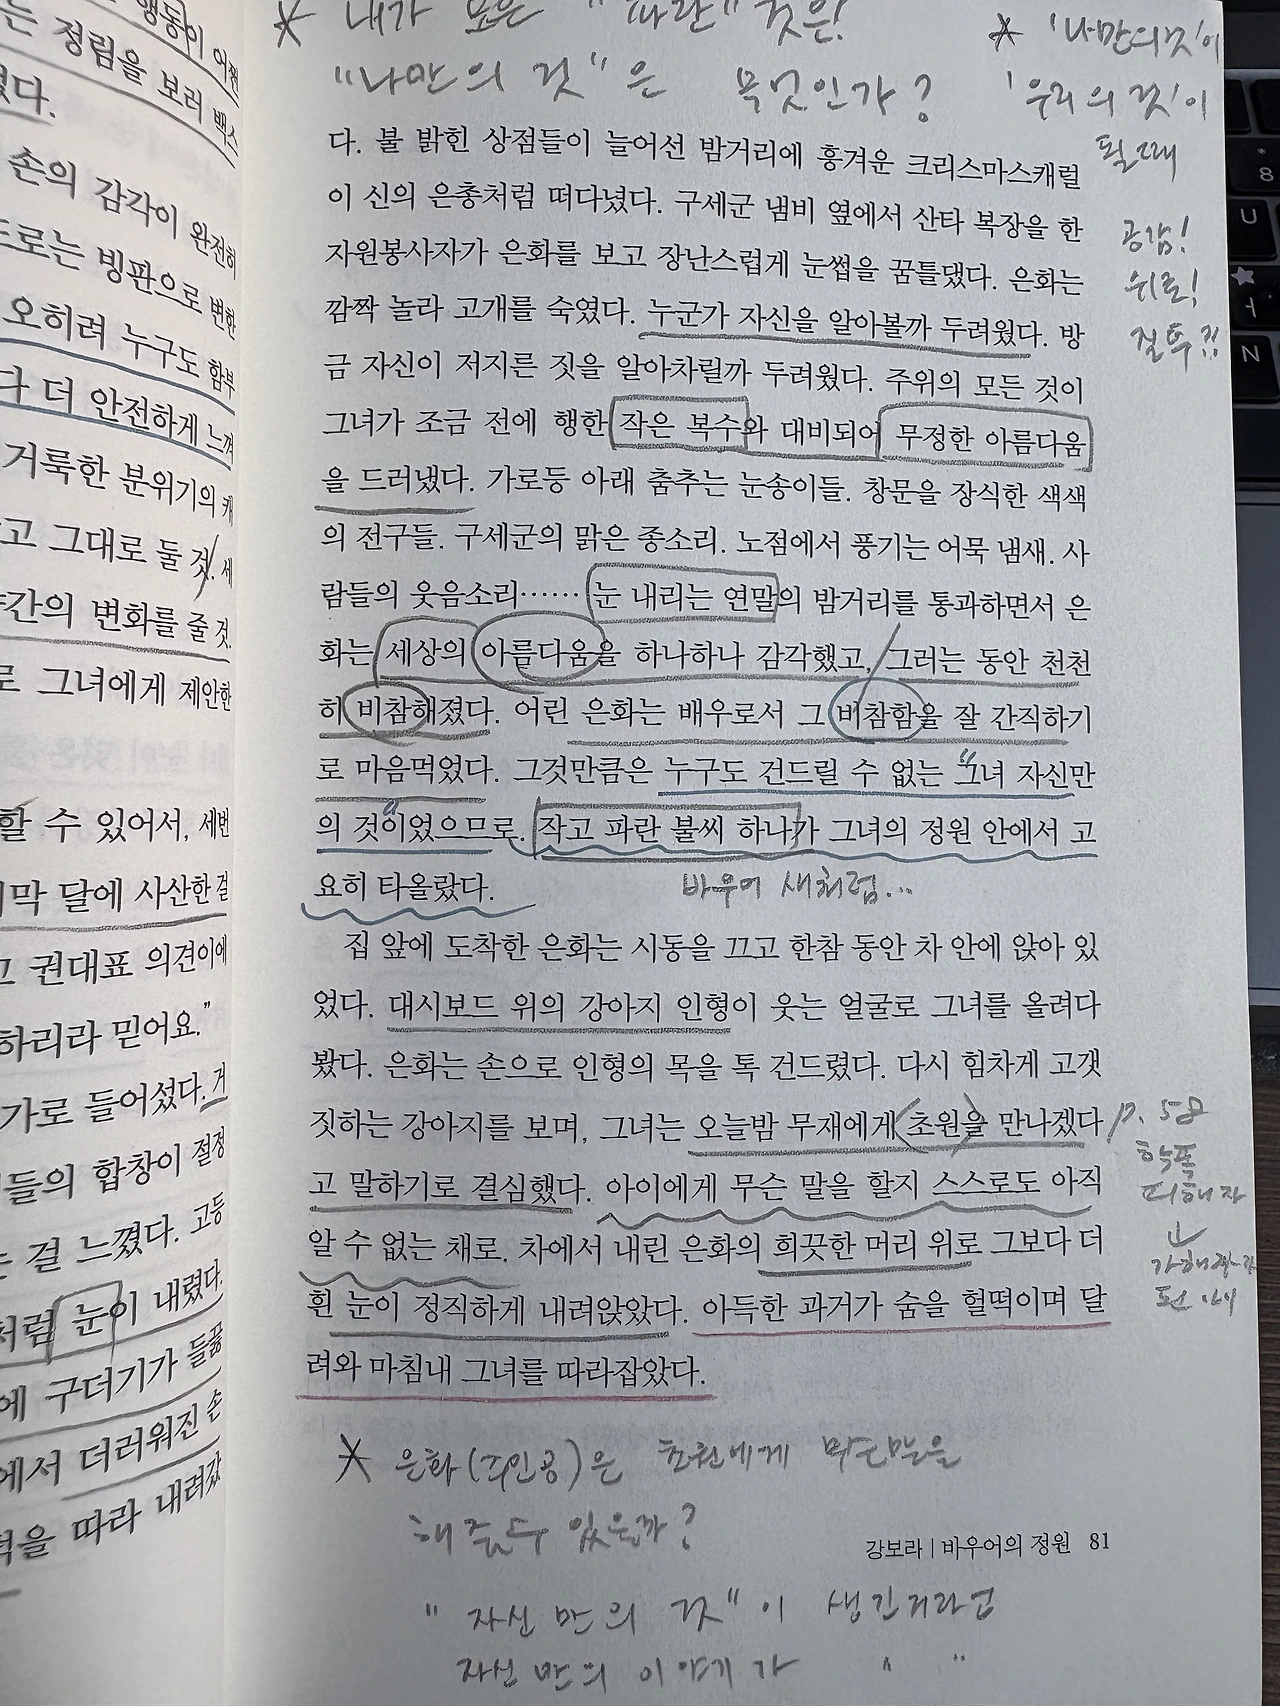 행동이 어쩐
는 정림을 보러 백스
었다.
손의 감각이 완전히
도로는 빙판으로 변한
오히려 누구도 함부
다 더 안전하게 느껴
거룩한 분위기의 캐
고 그대로 둘 것. 세
약간의 변화를 줄 것.
로 그녀에게 제안한
할 수 있어서, 세번
지막 달에 사산한 걸
고 권대표 의견이에
하리라 믿어요."
가로 들어섰다. 거
들의 합창이 절정
는 걸 느꼈다. 고등
처럼 눈이 내렸다.
에 구더기가 들끓
에서 더러워진 손
턱을 따라 내려갔
* 내가 모은 "파란" 것은!
"나만의 것"은 무엇인가?
* '나만의 것'이
'우리의 것'이
될 때
공감!
위로!
질투?!
다. 불 밝힌 상점들이 늘어선 밤거리에 흥겨운 크리스마스캐럴
이 신의 은총처럼 떠다녔다. 구세군 냄비 옆에서 산타 복장을 한
자원봉사자가 은화를 보고 장난스럽게 눈썹을 꿈틀댔다. 은화는
깜짝 놀라 고개를 숙였다. 누군가 자신을 알아볼까 두려웠다. 방
금 자신이 저지른 짓을 알아차릴까 두려웠다. 주위의 모든 것이
그녀가 조금 전에 행한 작은 복수와 대비되어 무정한 아름다움
을 드러냈다. 가로등 아래 춤추는 눈송이들. 창문을 장식한 색색
의 전구들. 구세군의 맑은 종소리. 노점에서 풍기는 어묵 냄새. 사
람들의 웃음소리…… 눈 내리는 연말의 밤거리를 통과하면서 은
화는 세상의 아름다움을 하나하나 감각했고, 그러는 동안 천천
히 비참해졌다. 어린 은화는 배우로서 그 비참함을 잘 간직하기
로 마음먹었다. 그것만큼은 누구도 건드릴 수 없는 "그녀 자신만
의 것"이었으므로. 작고 파란 불씨 하나가 그녀의 정원 안에서 고
요히 타올랐다.
바우어 새처럼...
집 앞에 도착한 은화는 시동을 끄고 한참 동안 차 안에 앉아 있
었다. 대시보드 위의 강아지 인형이 웃는 얼굴로 그녀를 올려다
봤다. 은화는 손으로 인형의 목을 톡 건드렸다. 다시 힘차게 고갯
짓하는 강아지를 보며, 그녀는 오늘밤 무재에게 초원을 만나겠다
고 말하기로 결심했다. 아이에게 무슨 말을 할지 스스로도 아직
알 수 없는 채로. 차에서 내린 은화의 희끗한 머리 위로 그보다 더
흰 눈이 정직하게 내려앉았다. 아득한 과거가 숨을 헐떡이며 달
려와 마침내 그녀를 따라잡았다.
학폭
피해자
↓
가해자가
된 아이
* 은화(주인공)은 초원에게 무슨 말을
해 줄 수 있을까?
강보라 | 바우어의 정원 81
"자신만의 것"이 생긴거라고
자신만의 이야기가 " "
8
U
N